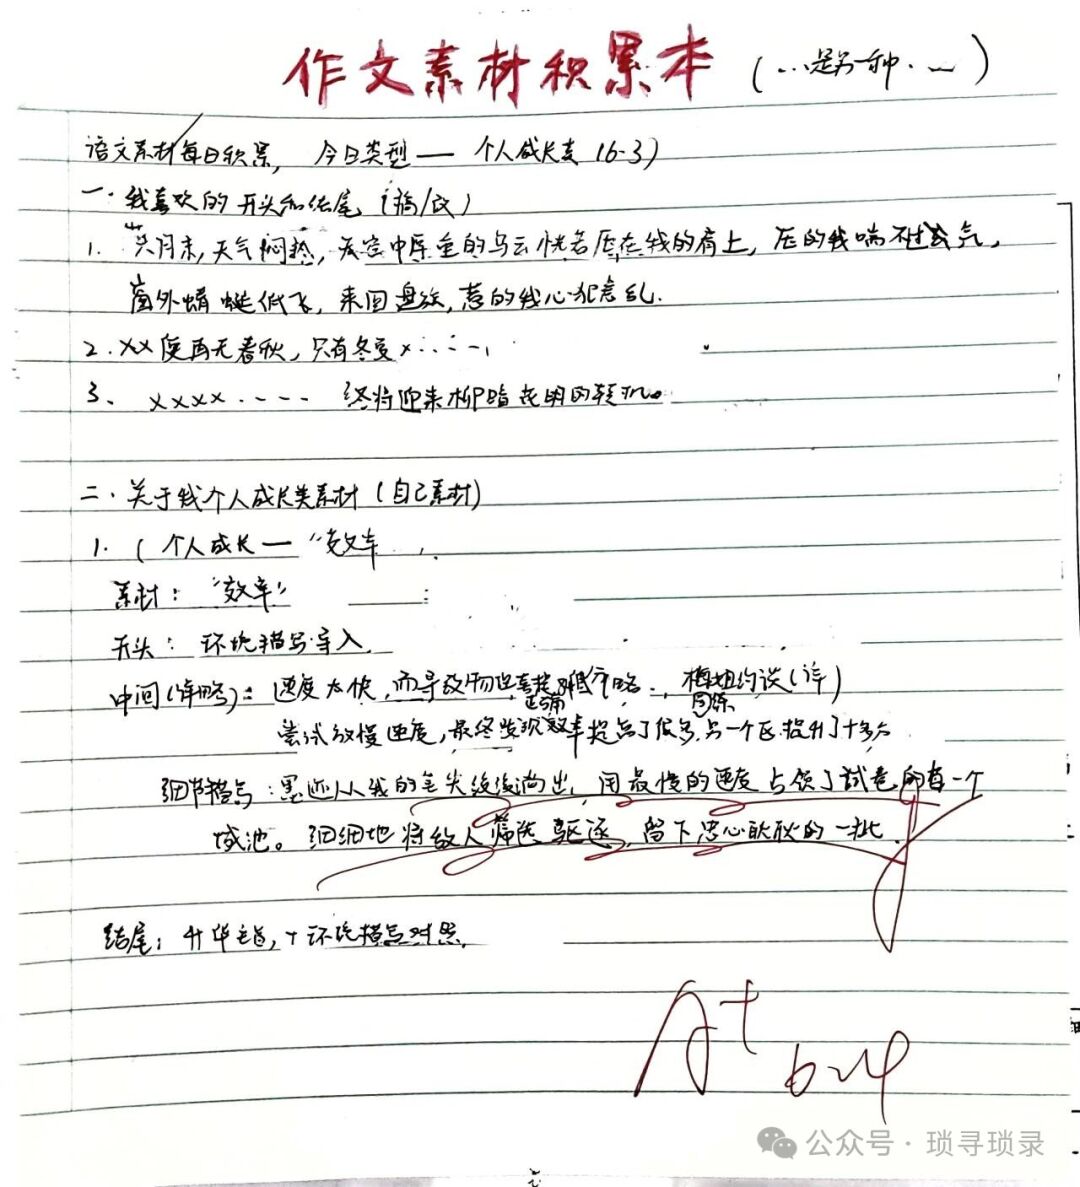 作文素材积累本 (...是另一种...)
语文素材每日积累, 今日类型— 个人成长类 (6-3)
一.我喜欢的开头和结尾 (摘/改)
1. 六月末,天气闷热,天空中厚重的乌云恍若压在我的肩上,压的我喘不过气,
窗外蜻蜓低飞,来回盘旋,惹的我心犯意乱.
2. XX度再无春秋,只有冬夏x......
3、 xxxx.... 终将迎来柳暗花明的转机。
二.关于我个人成长类素材(自己素材)
1. (个人成长—“效率
素材: “效率”
开头: 环境描写导入
中间(详略): 速度太快,而导致物理 略 约谈(详)
尝试放慢速度,最终发现效率提高了很多,另一个区提升了十多分
细节描写:墨迹从我的笔尖缓缓淌出,用最慢的速度占领了试卷的每一个
城池。细细地将敌人筛选驱逐,留下忠心耿耿的一批.
结尾: 升华主旨,+环境描写对照.
A+
6.4
公众号·琐寻琐录